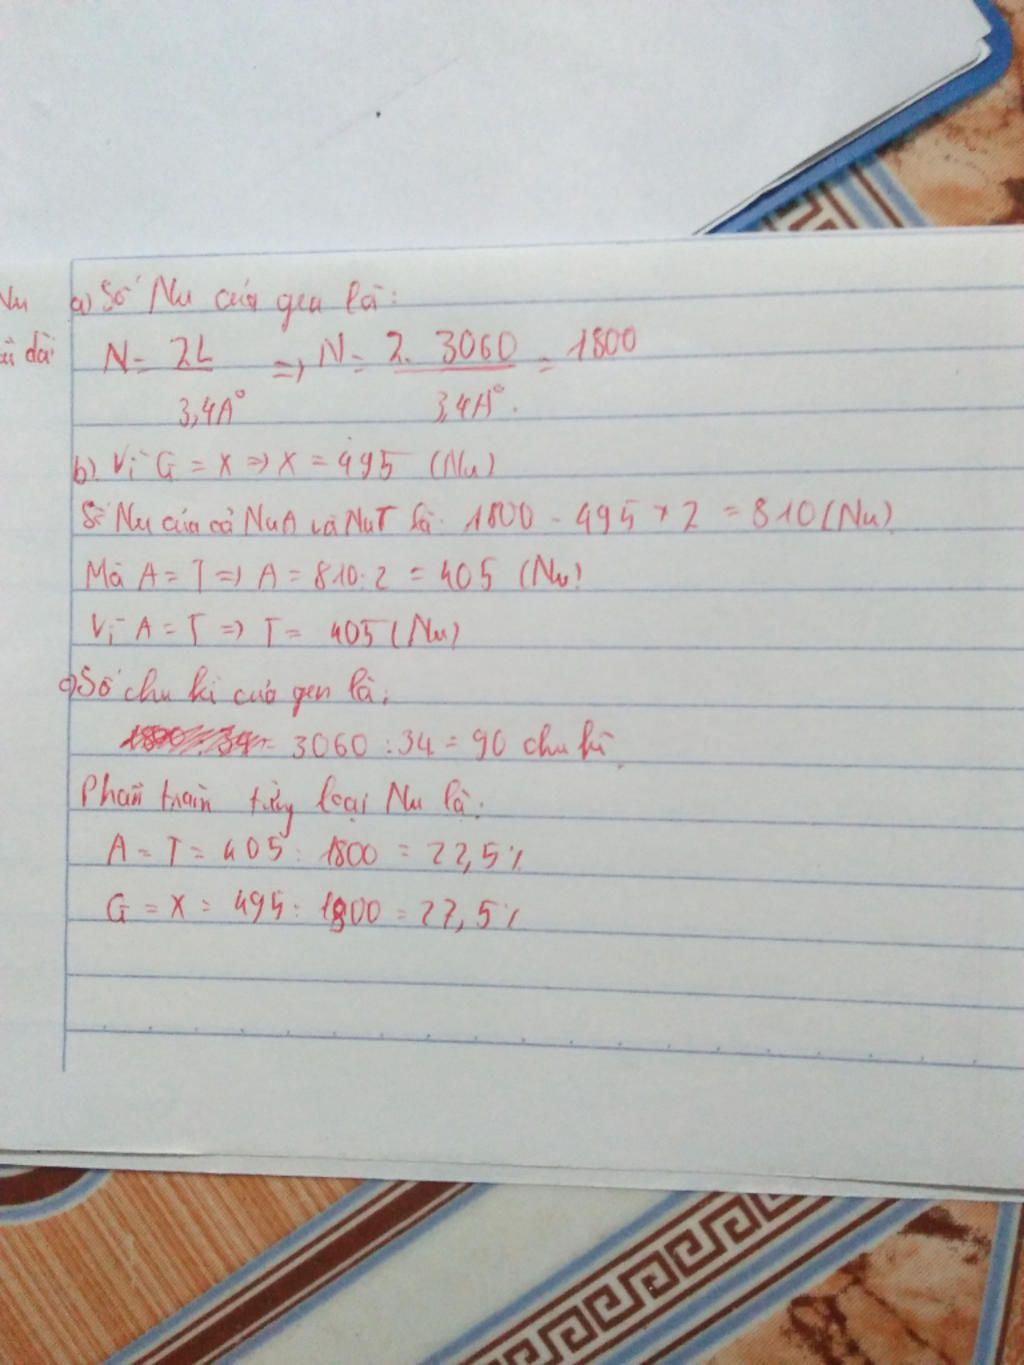 Nu a) Số Nu của gen là:
dài N = 2L => N = 2. 3060 = 1800
3,4A° 3,4A°.
b). Vì G = X => X = 495 (Nu)
Số Nu của cả NuA và NuT là: 1800 - 495 x 2 = 810 (Nu)
Mà A = T => A = 810:2 = 405 (Nu)
Vì A = T => T = 405 (Nu)
c) Số chu kì của gen là:
3060 : 34 = 90 chu kì
Phần trăm từng loại Nu là:
A = T = 405 : 1800 = 22,5%
G = X = 495 : 1800 = 27,5%